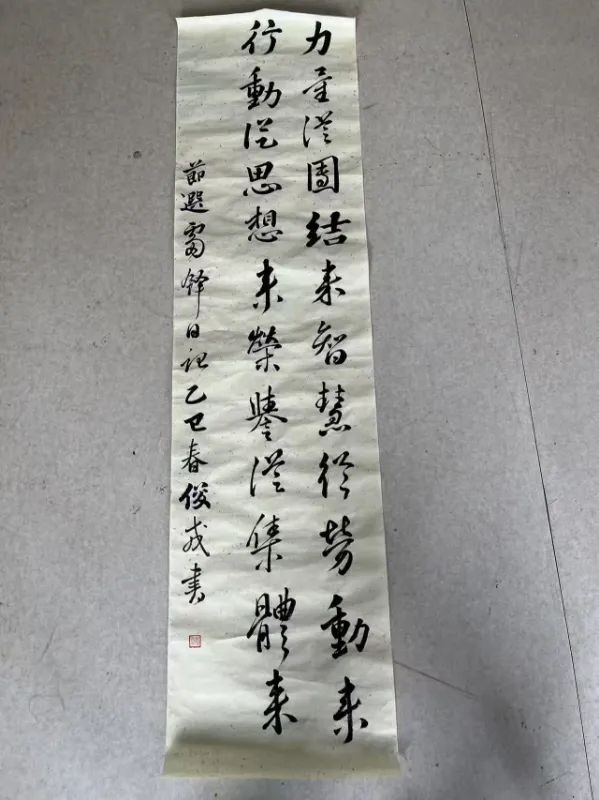 力量從團結来智慧從勞動来
行動從思想来榮譽從集體来
節選雷鋒日記乙巳春俊成書